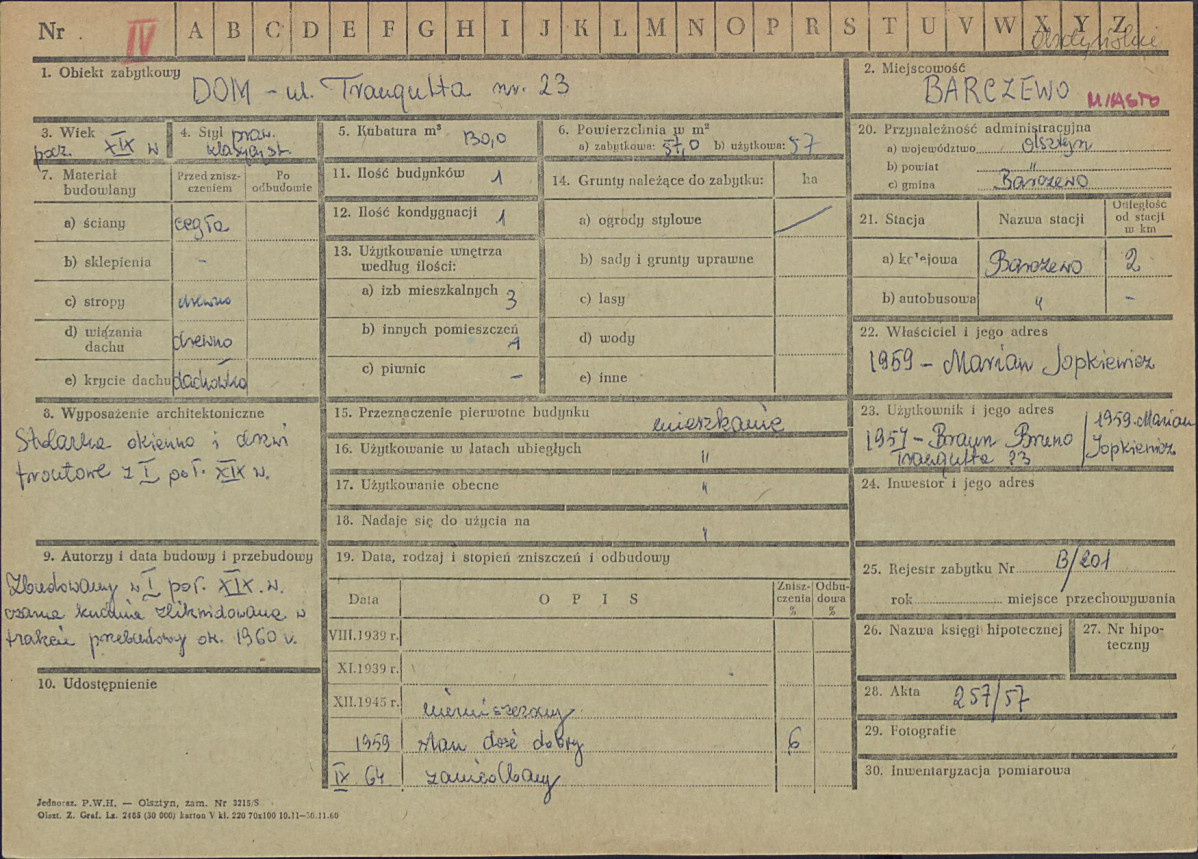 Nr IV A B C D E F G H I J K L M N O P R S T U V W X Y Z
olsztyńskie
1. Obiekt zabytkowy
DOM - ul. Traugutta nr. 23
2. Miejscowość
BARCZEWO MIASTO
3. Wiek
pocz. XIX w
4. Styl praw.
klasycyst.
5. Kubatura m³ 130,0
6. Powierzchnia w m²
a) zabytkowa: 57,0 b) użytkowa: 57
7. Materiał budowlany
Przed zniszczeniem
Po odbudowie
a) ściany cegła
b) sklepienia -
c) stropy drewno
d) wiązania dachu drewno
e) krycie dachu dachówka
8. Wyposażenie architektoniczne
Stolarka okienna i drzwi
frontowe z I poł. XIX w.
9. Autorzy i data budowy i przebudowy
Zbudowany w I poł. XIX. w.
czarna kuchnia zlikwidowana w
trakcie przebudowy ok. 1960 r.
10. Udostępnienie
11. Ilość budynków 1
12. Ilość kondygnacji 1
13. Użytkowanie wnętrza
według ilości:
a) izb mieszkalnych 3
b) innych pomieszczeń 1
c) piwnic -
14. Grunty należące do zabytku: ha
a) ogrody stylowe
b) sady i grunty uprawne
c) lasy
d) wody
e) inne
15. Przeznaczenie pierwotne budynku mieszkanie
16. Użytkowanie w latach ubiegłych "
17. Użytkowanie obecne "
18. Nadaje się do użycia na "
19. Data, rodzaj i stopień zniszczeń i odbudowy
Data OPIS Zniszczenia % Odbudowa %
VIII.1939 r.
XI.1939 r.
XII.1945 r. niezniszczony
1959 stan dość dobry 6
IX 64 zaniedbany
20. Przynależność administracyjna
a) województwo Olsztyn
b) powiat "
c) gmina Barczewo
21. Stacja Nazwa stacji Odległość od stacji w km
a) kolejowa Barczewo 2
b) autobusowa " -
22. Właściciel i jego adres
1959 - Marian Jopkiewicz
23. Użytkownik i jego adres
1957 - Braun Bruno
Traugutta 23
1959. Marian
Jopkiewicz
24. Inwestor i jego adres
25. Rejestr zabytku Nr B/201
rok miejsce przechowywania
26. Nazwa księgi hipotecznej
27. Nr hipoteczny
28. Akta 257/57
29. Fotografie
30. Inwentaryzacja pomiarowa
Jednoraz. P.W.H. — Olsztyn, zam. Nr 3215/S
Olszt. Z. Graf. Lz. 2465 (30 000) karton V kl. 220 70x100 10.11—30.11.60